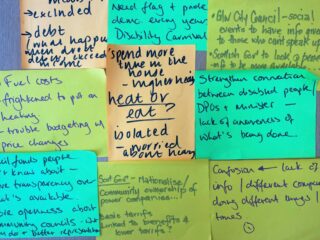 → excluded
→ debt
(what happens
when debt
exceed
home
Need flag + parade
demo every year
Disability Carnival
• Glw City Council - social
events to have info available
to those who cant speak up
• Scottish Govt to look @
info to be more available
Fuel costs
frightened to put on
heating
- trouble budgeting
price changes
spend more
time in the
house
- higher heating
heat or
eat?
isolated
- worried
about being
Strengthen connection
between disabled people/
DPOs + Minister -
lack of awareness of
what's being done.
funds people
know about -
more transparency over
what's available.
more openness about
community councils -
+ better representation
Scot Gov - Nationalise/
Community ownership of
power companies...?
Basic tariffs
Linked to benefits &
lower tariffs?
Confusion ← lack of
info / different companies
doing different things /
times